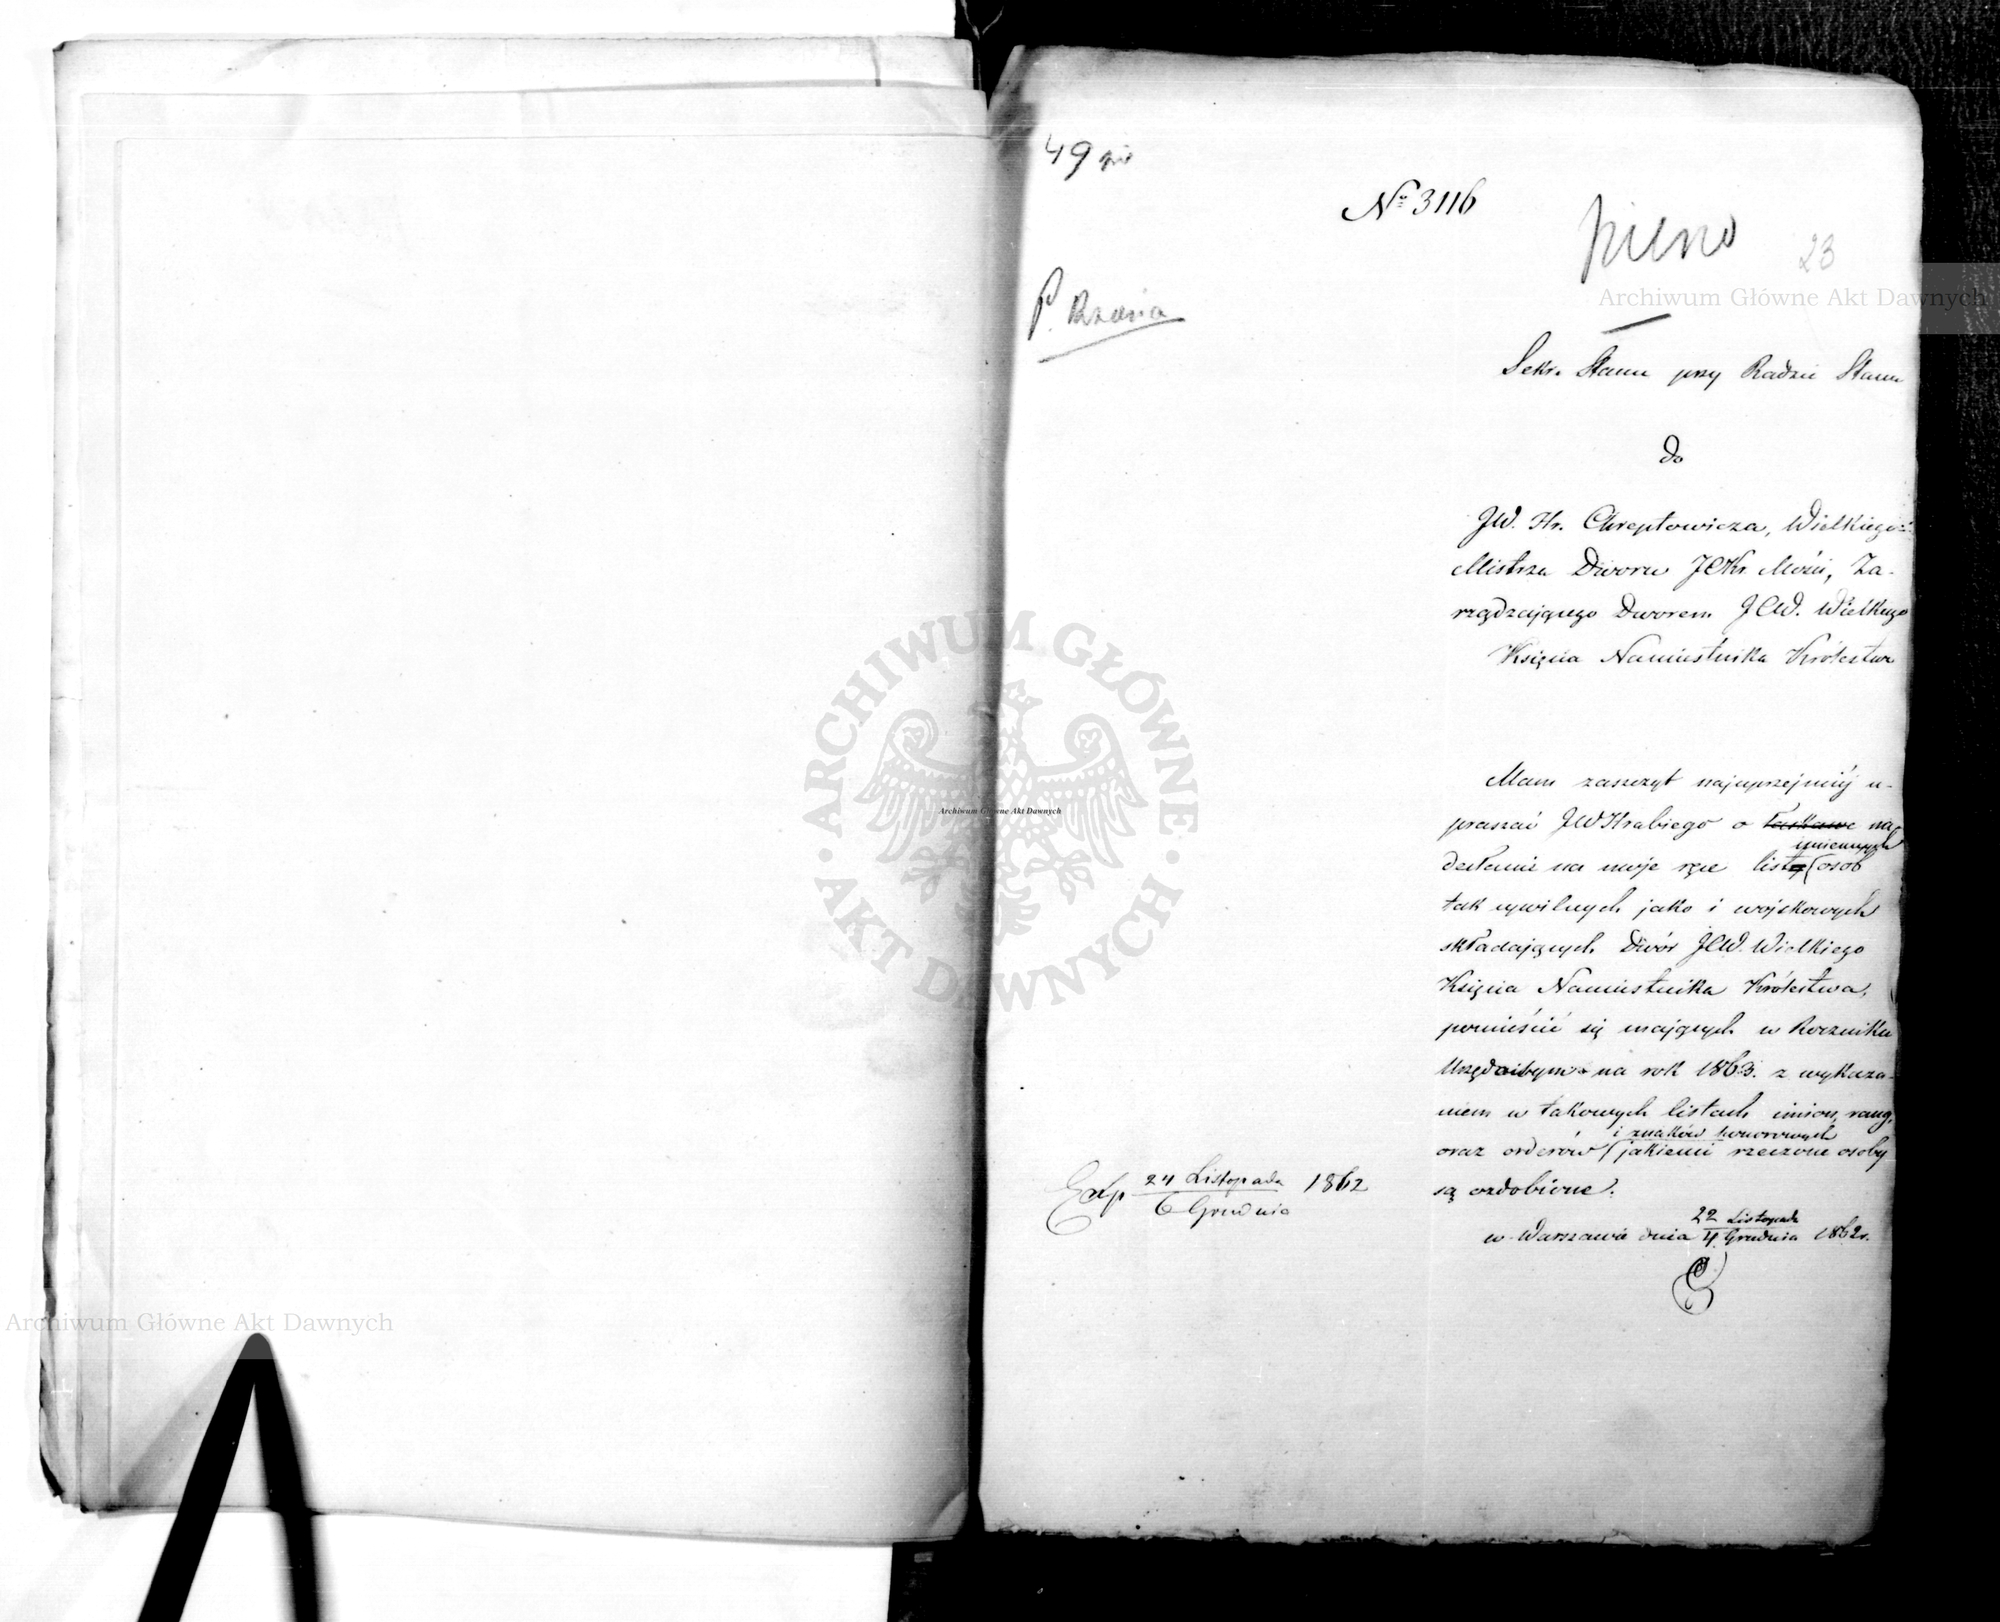 49
№ 3116
pilno
23
Archiwum Główne Akt Dawnych
P.
Sekr. Stanu przy Radzie Stanu
do
JW. Hr. Chreptowicza, Wielkiego
Mistrza Dworu JCKr. Mości, Za-
rządzającego Dworem JCW. Wielkiego
Księcia Namiestnika Królestwa
Mam zaszczyt najuprzejmiéj u-
praszać JWHrabiego o łaskawe na
imiennych
desłanie na moje ręce listy osób
tak cywilnych jako i wojskowych
składających Dwór JCW. Wielkiego
Księcia Namiestnika Królestwa,
pomieścić się mających w Roczniku
Urzędowym na rok 1863. z wykaza-
niem w takowych listach imion, rang,
i znaków honorowych
oraz orderów jakiemi rzeczone osoby
są ozdobione.
w Warszawie dnia 22 Listopada / 4 Grudnia 1862 r.
Exp 24 Listopada / 6 Grudnia 1862
ARCHIWUM GŁÓWNE · AKT DAWNYCH ·
Archiwum Główne Akt Dawnych
Archiwum Główne Akt Dawnych